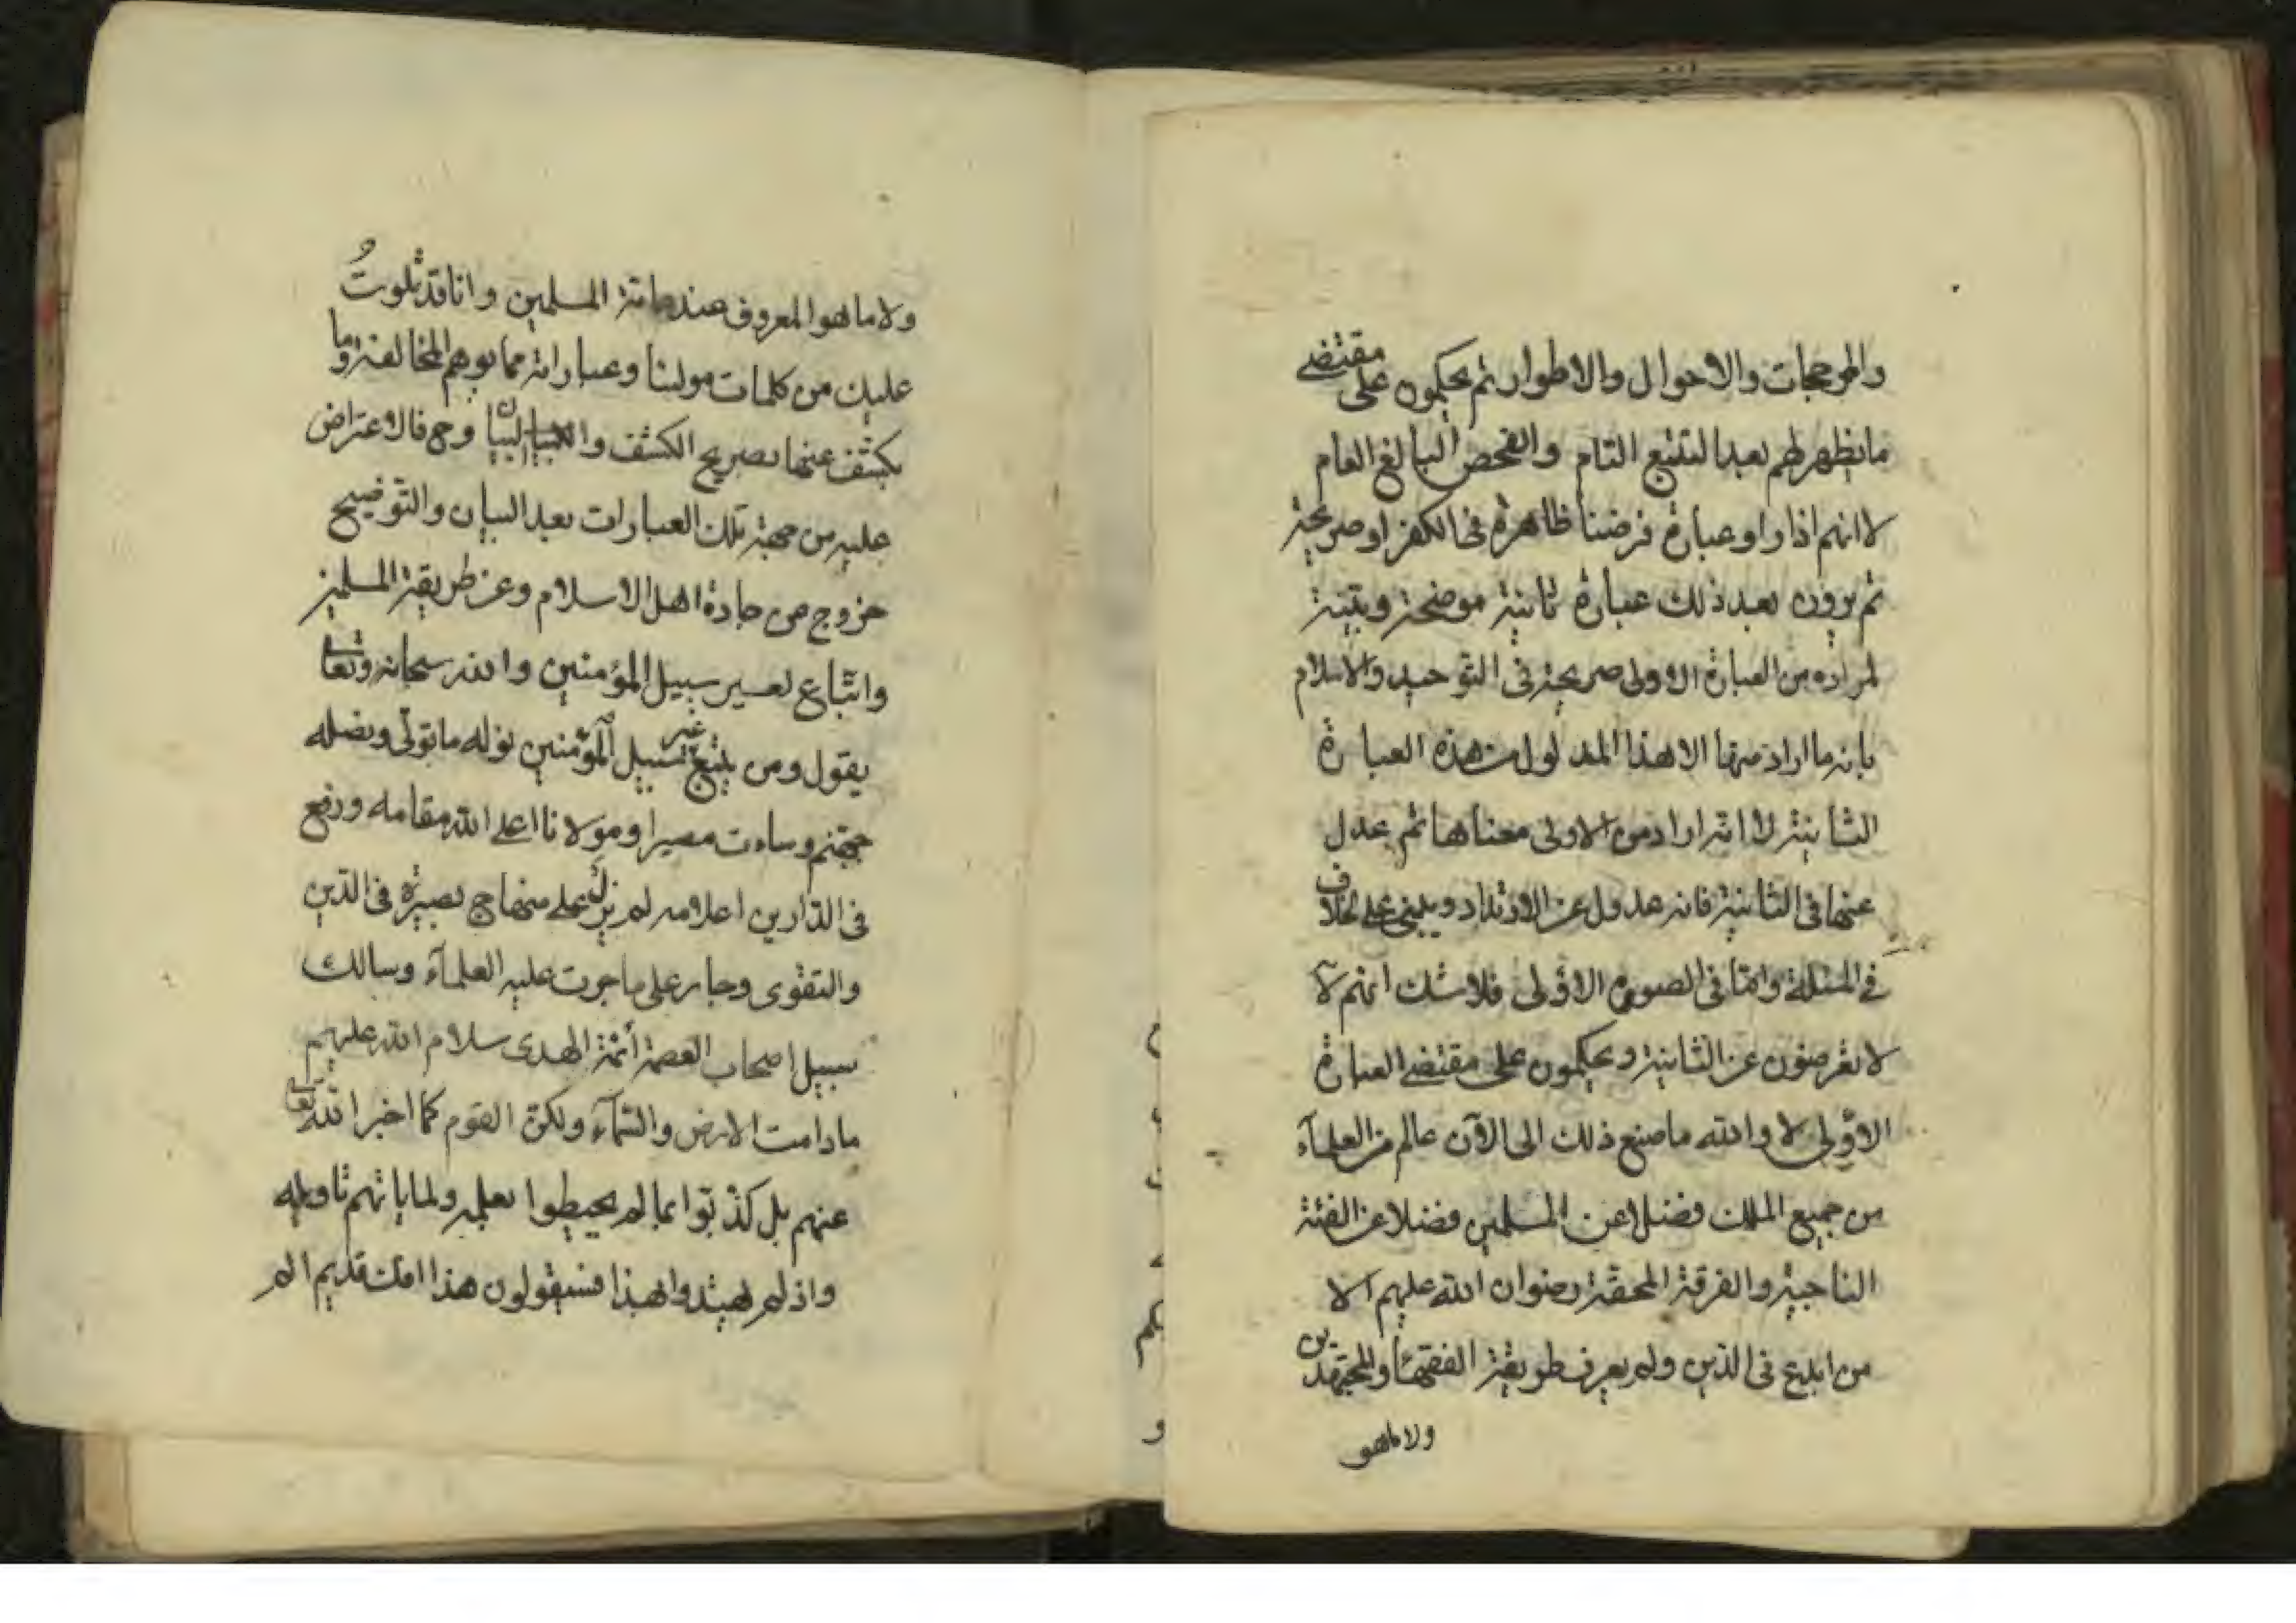 والمرجحات والاحوال والاطوار ثم يحكمون على مقتضى
ما يظهر لهم بعد التتبع التام والفحص البالغ العام
لا انهم اذا راوا عبارة فرضنا ظاهرة في الكفر او صريحة
ثم يرون بعد ذلك عبارة ثانية موضحة ومبينة
لمراده من العبارة الاولى صريحة في التوحيد والاسلام
بانه ما اراد منها الا هذا المدلول من هذه العبارة
الثانية لا انه اراد من الاولى معناها ثم عدل
عنها في الثانية فانه عدول عن الارتداد ويبنى على خلاف
في المسئلة واما في الصورة الاولى فلا شك انهم لا
لا يعرضون عن الثانية ويحكمون على مقتضى العبارة
الاولى لا والله ما صنع ذلك الى الآن عالم من العلمآء
من جميع الملل فضلا عن المسلمين فضلا عن الفئة
الناجية والفرقة المحقة رضوان الله عليهم الا
من ابدع في الدين ولم يعرف طريقة الفقهآء والمجتهدين
ولا ما هو
ولا ما هو المعروف عند عامة المسلمين وانا قد تلوت
عليك من كلمات مولينا وعباراته مما يوهم المخالفة وما
يكشف عنها بصريح الكشف والبيان وح فالاعتراض
عليه من جهة تلك العبارات بعد البيان والتوضيح
خروج عن جادة اهل الاسلام وعن طريقة المسلمين
واتباع لغير سبيل المؤمنين والله سبحانه وتعالى
يقول ومن يتبع غير سبيل المؤمنين نوله ما تولى ونصله
جهنم وساءت مصيرا ومولانا اعلى الله مقامه ورفع
في الدارين اعلامه لم يزل على منهاج بصيرة في الدين
والتقوى وجار على ما جرت عليه العلمآء وسالك
سبيل اصحاب العصمة أئمة الهدى سلام الله عليهم
مادامت الارض والسمآء ولكن القوم كما اخبر الله تعالى
عنهم بل كذبوا بما لم يحيطوا بعلمه ولما ياتهم تاويله
واذ لم يهتدوا بهذا فسيقولون هذا افك قديم الم